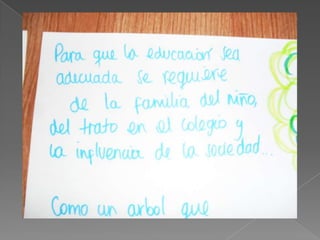 Para que la educación sea
adecuada se requiere
de la familia del niño,
del trato en el colegio y
la influencia de la sociedad...
Como un arbol que